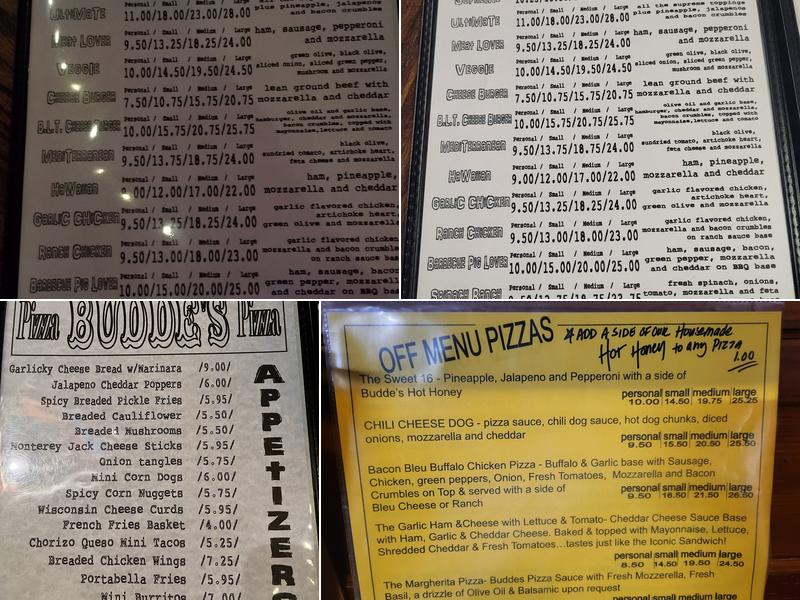 ULTIMATE
Personal / Small / Medium / Large
11.00/18.00/23.00/28.00
plus pineapple, jalapenos
and bacon crumbles
MEAT LOVER
Personal / Small / Medium / Large
9.50/13.25/18.25/24.00
ham, sausage, pepperoni
and mozzarella
VEGGIE
Personal / Small / Medium / Large
10.00/14.50/19.50/24.50
green olive, black olive,
sliced onion, sliced green pepper,
mushroom and mozzarella
CHEESE BURGER
Personal / Small / Medium / Large
7.50/10.75/15.75/20.75
lean ground beef with
mozzarella and cheddar
B.L.T. CHEESE BURGER
Personal / Small / Medium / Large
10.00/15.75/20.75/25.75
olive oil and garlic base,
hamburger, cheddar and mozzarella,
bacon crumbles, topped with
mayonnaise,lettuce and tomato
MEDITERRANEAN
Personal / Small / Medium / Large
9.50/13.75/18.75/24.00
black olive,
sundried tomato, artichoke heart,
feta cheese and mozzarella
HAWAIIAN
Personal / Small / Medium / Large
9.00/12.00/17.00/22.00
ham, pineapple,
mozzarella and cheddar
GARLIC CHICKEN
Personal / Small / Medium / Large
9.50/13.25/18.25/24.00
garlic flavored chicken,
artichoke heart,
green olive and mozzarella
RANCH CHICKEN
Personal / Small / Medium / Large
9.50/13.00/18.00/23.00
garlic flavored chicken
mozzarella and bacon crumbles
on ranch sauce base
BARBECUE PIG LOVER
Personal / Small / Medium / Large
10.00/15.00/20.00/25.00
ham, sausage, bacon
green pepper, mozzarella
and cheddar on BBQ base
ULTIMATE
Personal / Small / Medium / Large
11.00/18.00/23.00/28.00
all the supreme toppings
plus pineapple, jalapenos
and bacon crumbles
MEAT LOVER
Personal / Small / Medium / Large
9.50/13.25/18.25/24.00
ham, sausage, pepperoni
and mozzarella
VEGGIE
Personal / Small / Medium / Large
10.00/14.50/19.50/24.50
green olive, black olive,
sliced onion, sliced green pepper,
mushroom and mozzarella
CHEESE BURGER
Personal / Small / Medium / Large
7.50/10.75/15.75/20.75
lean ground beef with
mozzarella and cheddar
B.L.T. CHEESE BURGER
Personal / Small / Medium / Large
10.00/15.75/20.75/25.75
olive oil and garlic base,
hamburger, cheddar and mozzarella,
bacon crumbles, topped with
mayonnaise,lettuce and tomato
MEDITERRANEAN
Personal / Small / Medium / Large
9.50/13.75/18.75/24.00
black olive,
sundried tomato, artichoke heart,
feta cheese and mozzarella
HAWAIIAN
Personal / Small / Medium / Large
9.00/12.00/17.00/22.00
ham, pineapple,
mozzarella and cheddar
GARLIC CHICKEN
Personal / Small / Medium / Large
9.50/13.25/18.25/24.00
garlic flavored chicken,
artichoke heart,
green olive and mozzarella
RANCH CHICKEN
Personal / Small / Medium / Large
9.50/13.00/18.00/23.00
garlic flavored chicken,
mozzarella and bacon crumbles
on ranch sauce base
BARBECUE PIG LOVER
Personal / Small / Medium / Large
10.00/15.00/20.00/25.00
ham, sausage, bacon,
green pepper, mozzarella
and cheddar on BBQ base
SPINACH RANCH
Personal / Small / Medium / Large
fresh spinach, onions,
tomato, mozzarella and feta
Pizza BUDDE'S Pizza
APPETIZERS
Garlicky Cheese Bread w/Marinara /9.00/
Jalapeno Cheddar Poppers /6.00/
Spicy Breaded Pickle Fries /5.95/
Breaded Cauliflower /5.50/
Breaded Mushrooms /5.50/
Monterey Jack Cheese Sticks /5.95/
Onion tangles /5.75/
Mini Corn Dogs /6.00/
Spicy Corn Nuggets /5.75/
Wisconsin Cheese Curds /5.95/
French Fries Basket /4.00/
Chorizo Queso Mini Tacos /5.25/
Breaded Chicken Wings /7.25/
Portabella Fries /5.95/
Mini Burritos /7.00/
OFF MENU PIZZAS
* ADD A SIDE OF OUR Housemade
Hot Honey to any Pizza
1.00
The Sweet 16 - Pineapple, Jalapeno and Pepperoni with a side of
Budde's Hot Honey
personal|small|medium|large
10.00|14.50|19.75|25.25
CHILI CHEESE DOG - pizza sauce, chili dog sauce, hot dog chunks, diced
onions, mozzarella and cheddar
personal|small|medium|large
9.50|15.50|20.50|25.50
Bacon Bleu Buffalo Chicken Pizza - Buffalo & Garlic base with Sausage,
Chicken, green peppers, Onion, Fresh Tomatoes, Mozzarella and Bacon
Crumbles on Top & served with a side of
Bleu Cheese or Ranch
personal|small|medium|large
9.50|16.50|21.50|26.50
The Garlic Ham &Cheese with Lettuce & Tomato- Cheddar Cheese Sauce Base
with Ham, Garlic & Cheddar Cheese. Baked & topped with Mayonnaise, Lettuce,
Shredded Cheddar & Fresh Tomatoes...tastes just like the Iconic Sandwich!
personal|small|medium|large
8.50|14.50|19.50|24.50
The Margherita Pizza- Buddes Pizza Sauce with Fresh Mozzerella, Fresh
Basil, a drizzle of Olive Oil & Balsamic upon request
personal|small|medium|large